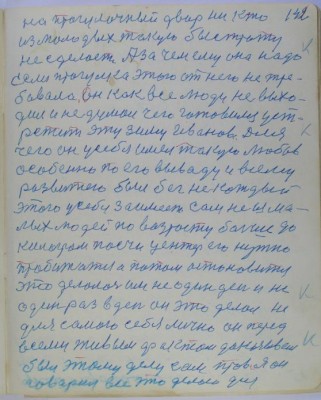 на прогулочный двор ни кто 142
из молодых такую быстроту
не сделает. А зачем ему она надо
если прогулка этого от него не тре-
бовала, он как все люди не выхо-
дил и не думал чего готовился
эту зиму Иванов. Для
чего он у себя имел такую любовь
особенно по его выводу и всему
развитого был бег не каждый
этого у себя заимеет сам
людей по возрасту больше до
почти центр его нужно
пробежатся а потом остановится
это делалось им не один ден и не
один раз в ден он это делал не
для самого себя лично он перед
всеми живым фактом
был этому делу сам
говорил все это делал для